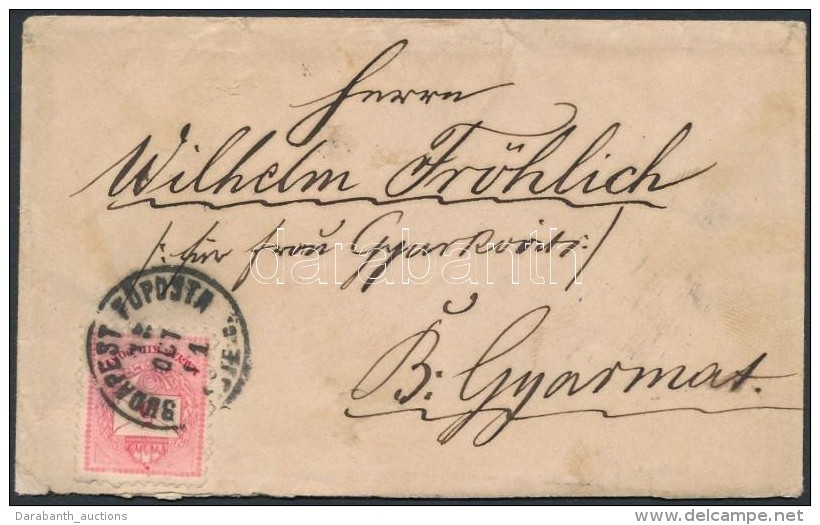 Herrn
Wilhelm Fröhlich
/: für Frau Gyurkovits :/
B: Gyarmat.
BUDAPEST FŐPOSTA
darabanth
Darabanth_auctions
www.delcampe.net